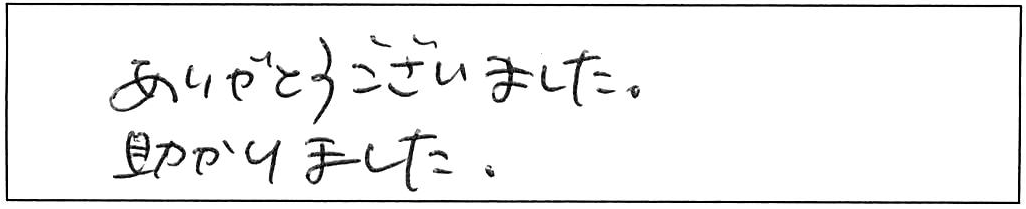 ありがとうございました。
助かりました。